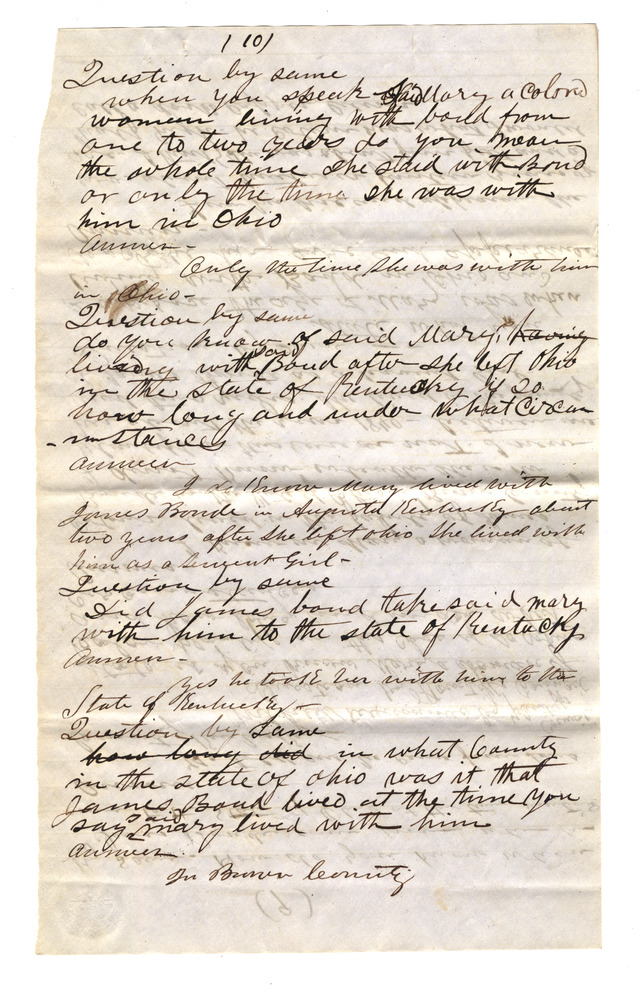 (10)
Question by same
when you speak of said Mary a colord
woman living with bond from
one to two years do you mean
the whole time she staid with Bond
or only the time she was with
him in Ohio
Answer -
Only the time she was with him
in Ohio -
Question by same
do you know of said Mary, having
living with said Bond after she left Ohio
in the state of Kentucky if so
how long and under what Circum
-mstances
Answer
I do Know Mary lived with
James Bonde in Augusta Kentucky about
two years after she left ohio She lived with
him as a Servent Girl -
Question by same
Did James bond take said mary
with him to the state of Kentucky
Answer -
yes he took her with him to the
State of Kentucky -
Question by same
how long did in what County
in the state of ohio was it that
James Bond lived at the time you
say said mary lived with him
Answer
In Brown County
(9)